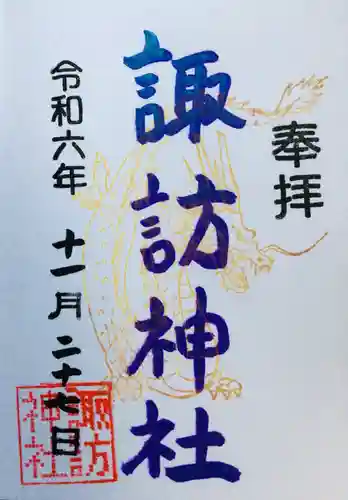 奉拝
諏訪神社
令和六年 十一月二十七日
諏訪
神社